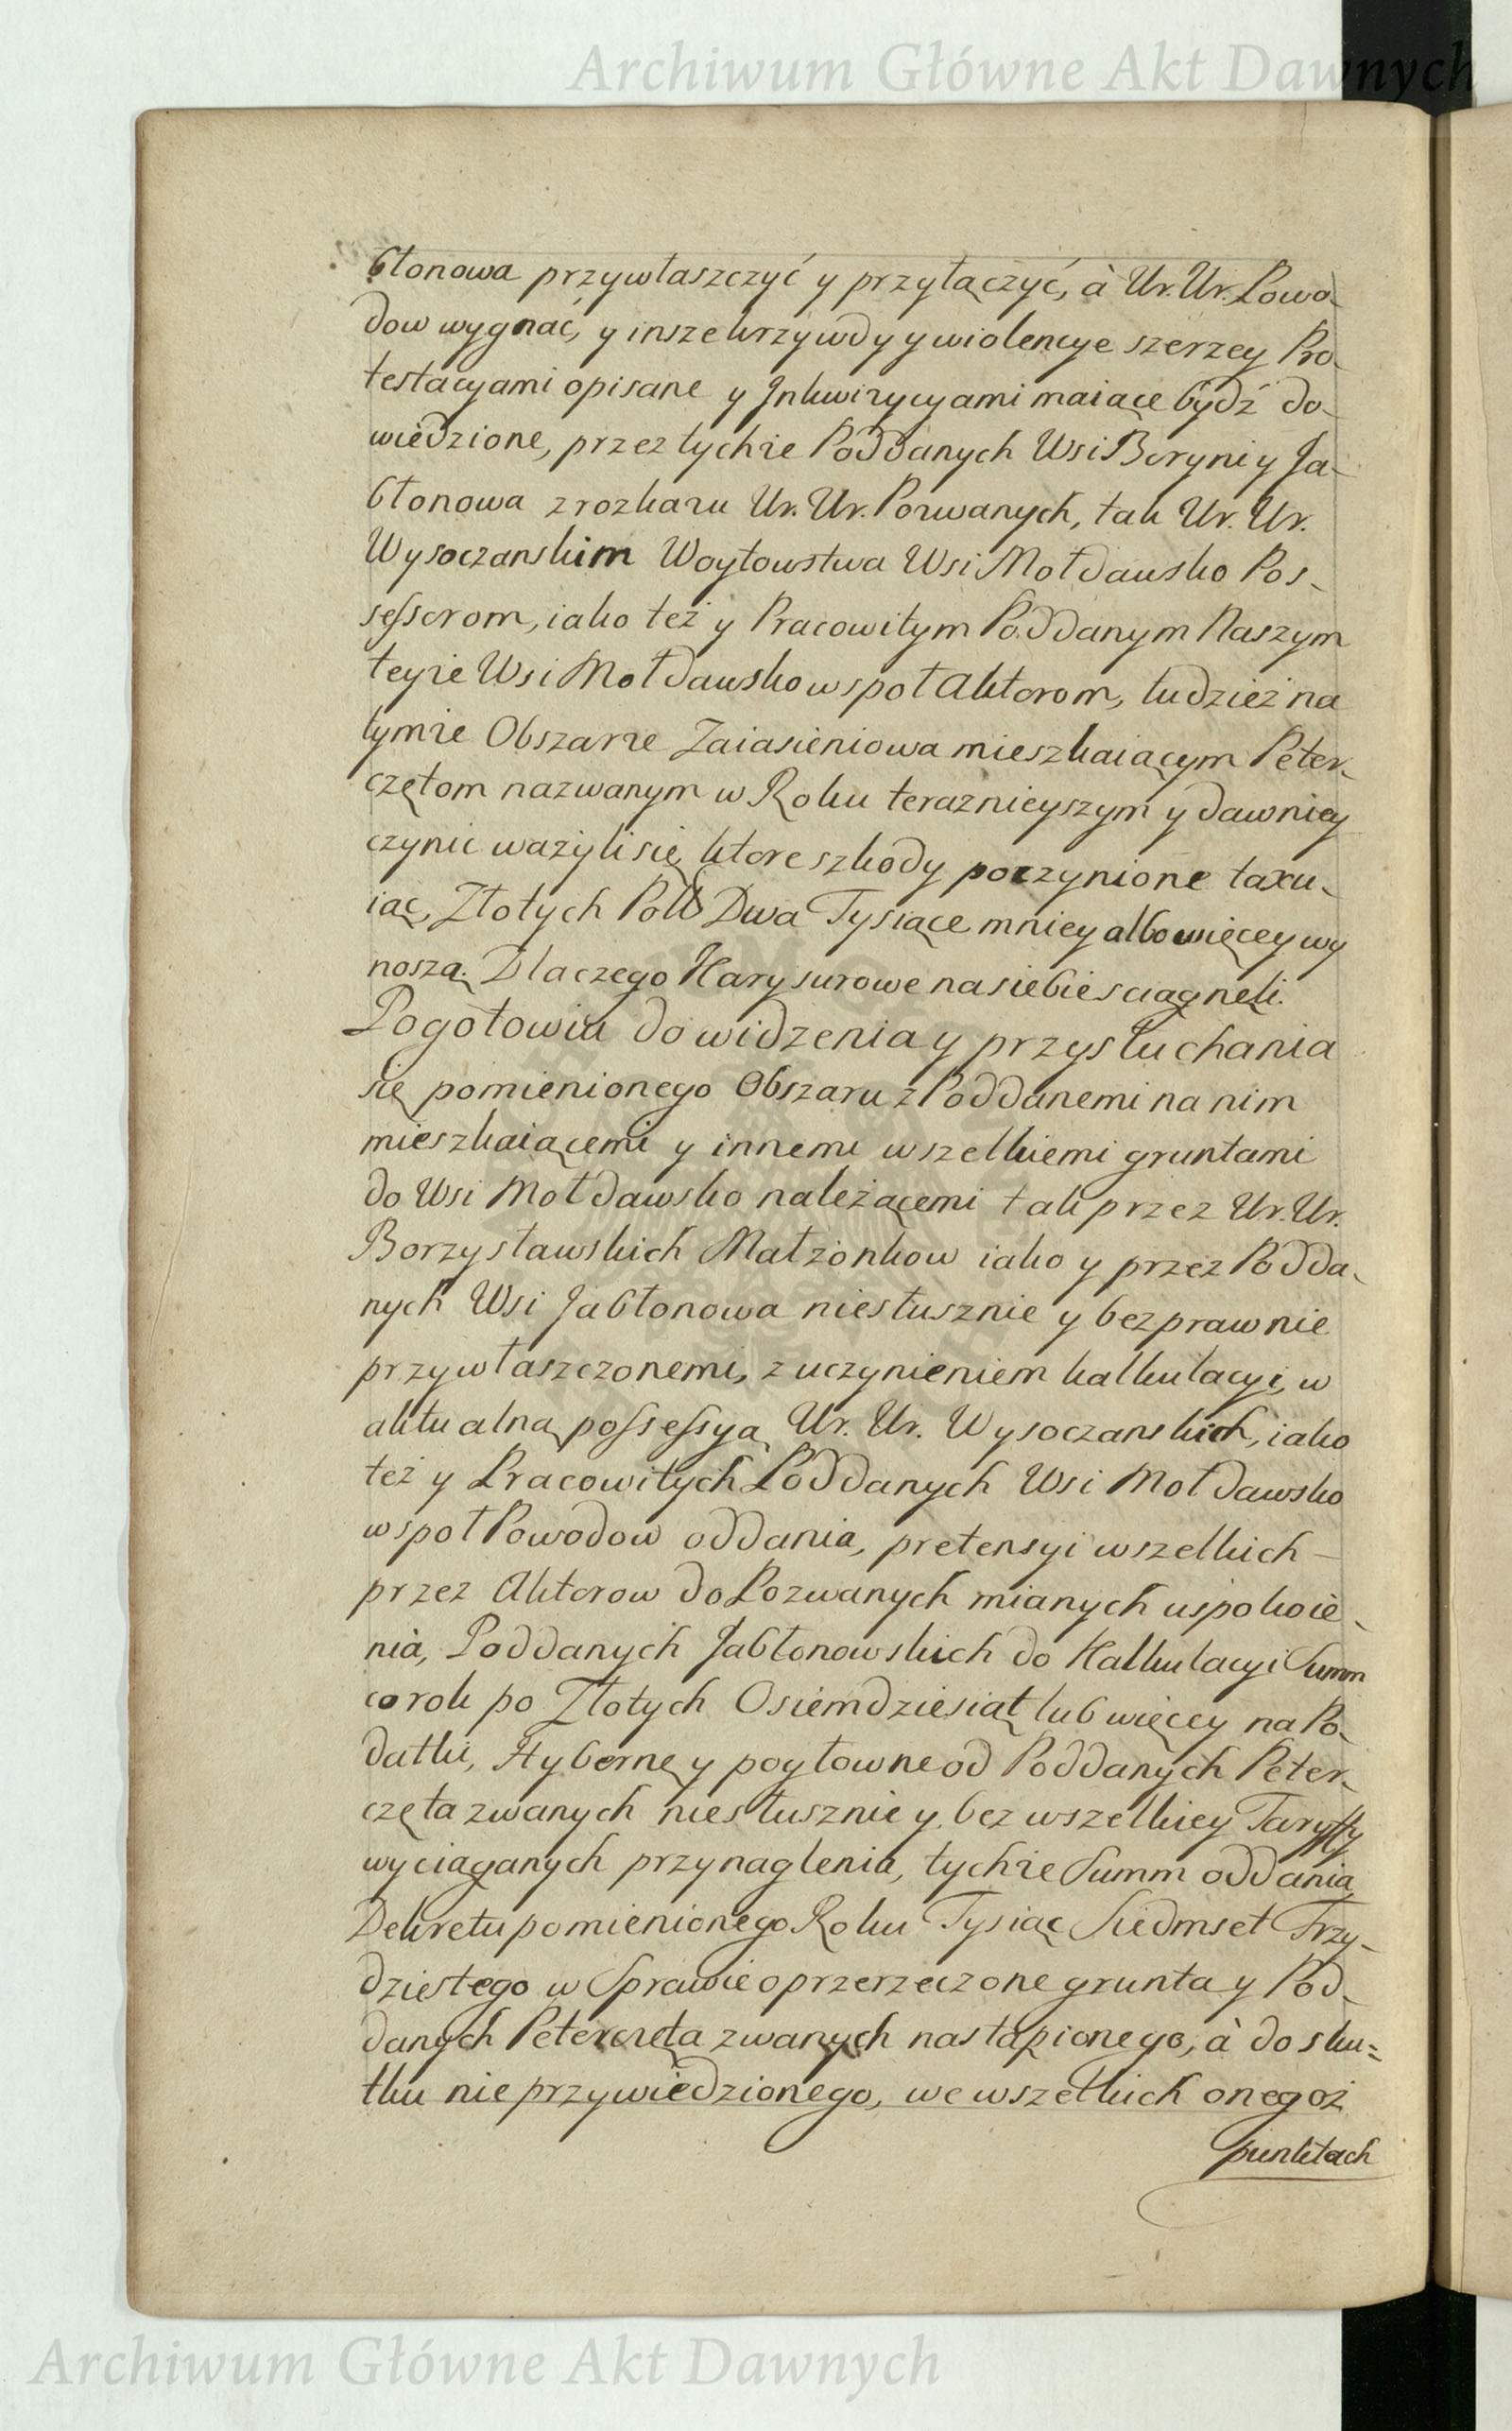 Archiwum Główne Akt Dawnych
błonowa przywłaszczyć y przyłączyć, à Ur. Ur. Powo-
dow wygnać, y insze krzywdy y wiolencye szerzey Pro-
testacyami opisane y Inkwizycyami maiące bydź do-
wiedzione, przez tychże Poddanych Wsi Boryni y Ja-
błonowa z rozkazu Ur. Ur. Pozwanych, tak Ur. Ur.
Wysoczanskim Woytowstwa Wsi Mołdawsko Pos-
sessorom, iako też y Pracowitym Poddanym Naszym
teyże Wsi Mołdawsko wspoł Aktorom, tudzież na
tymże Obszarze Zaiasieniowa mieszkaiącym Peter-
czętom nazwanym w Roku teraznieyszym y dawniey
czynic ważyli się, ktore szkody poczynione taxu-
iąc, Złotych Pol: Dwa Tysiące mniey albo więcey wy
noszą. Dlaczego Kary surowe na siebie sciągneli.
Pogotowiu do widzenia y przysłuchania
się pomienionego Obszaru z Poddanemi na nim
mieszkaiącemi y innemi wszelkiemi gruntami
do Wsi Mołdawsko należącemi tak przez Ur. Ur.
Borzysławskich Małżonkow iako y przez Podda-
nych Wsi Jabłonowa niesłusznie y bezprawnie
przywłaszczonemi, z uczynieniem kalkulacyi, w
aktualną possessyą Ur. Ur. Wysoczanskich, iako
też y Pracowitych Poddanych Wsi Mołdawsko
wspoł Powodow oddania, pretensyi wszelkich –
przez Aktorow do Pozwanych mianych uspokoie-
nia, Poddanych Jabłonowskich do Kalkulacyi Summ
co rok po Złotych Osiemdziesiąt lub więcey na Po-
datki, Hybernę y pogłowne od Poddanych Peter-
częta zwanych niesłusznie y bez wszelkiey Taryffy
wyciąganych przynaglenia, tychże Summ oddania
Dekretu pomienionego Roku Tysiąc Siedmset Trzy-
dziestego w Sprawie o przerzeczone grunta y Pod-
danych Peterczęta zwanych nastąpionego, à do sku=
tku nie przywiedzionego, we wszelkich onegoż
punktach
Archiwum Główne Akt Dawnych